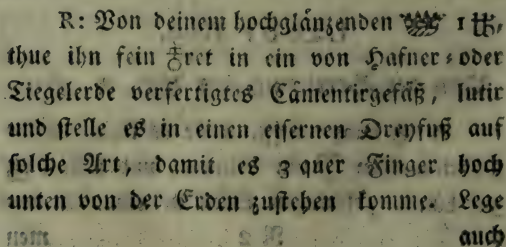 R: Von deinem hochglänzenden 1 ℔,
thue ihn fein ♁ret in ein von Hafner⸗oder
Tiegelerde verfertigtes Cämentirgefäß, lutir
und stelle es in einen eisernen Dreyfuß auf
solche Art, damit es 3 quer Finger hoch
unten von der Erden zustehen komme. Lege
auch